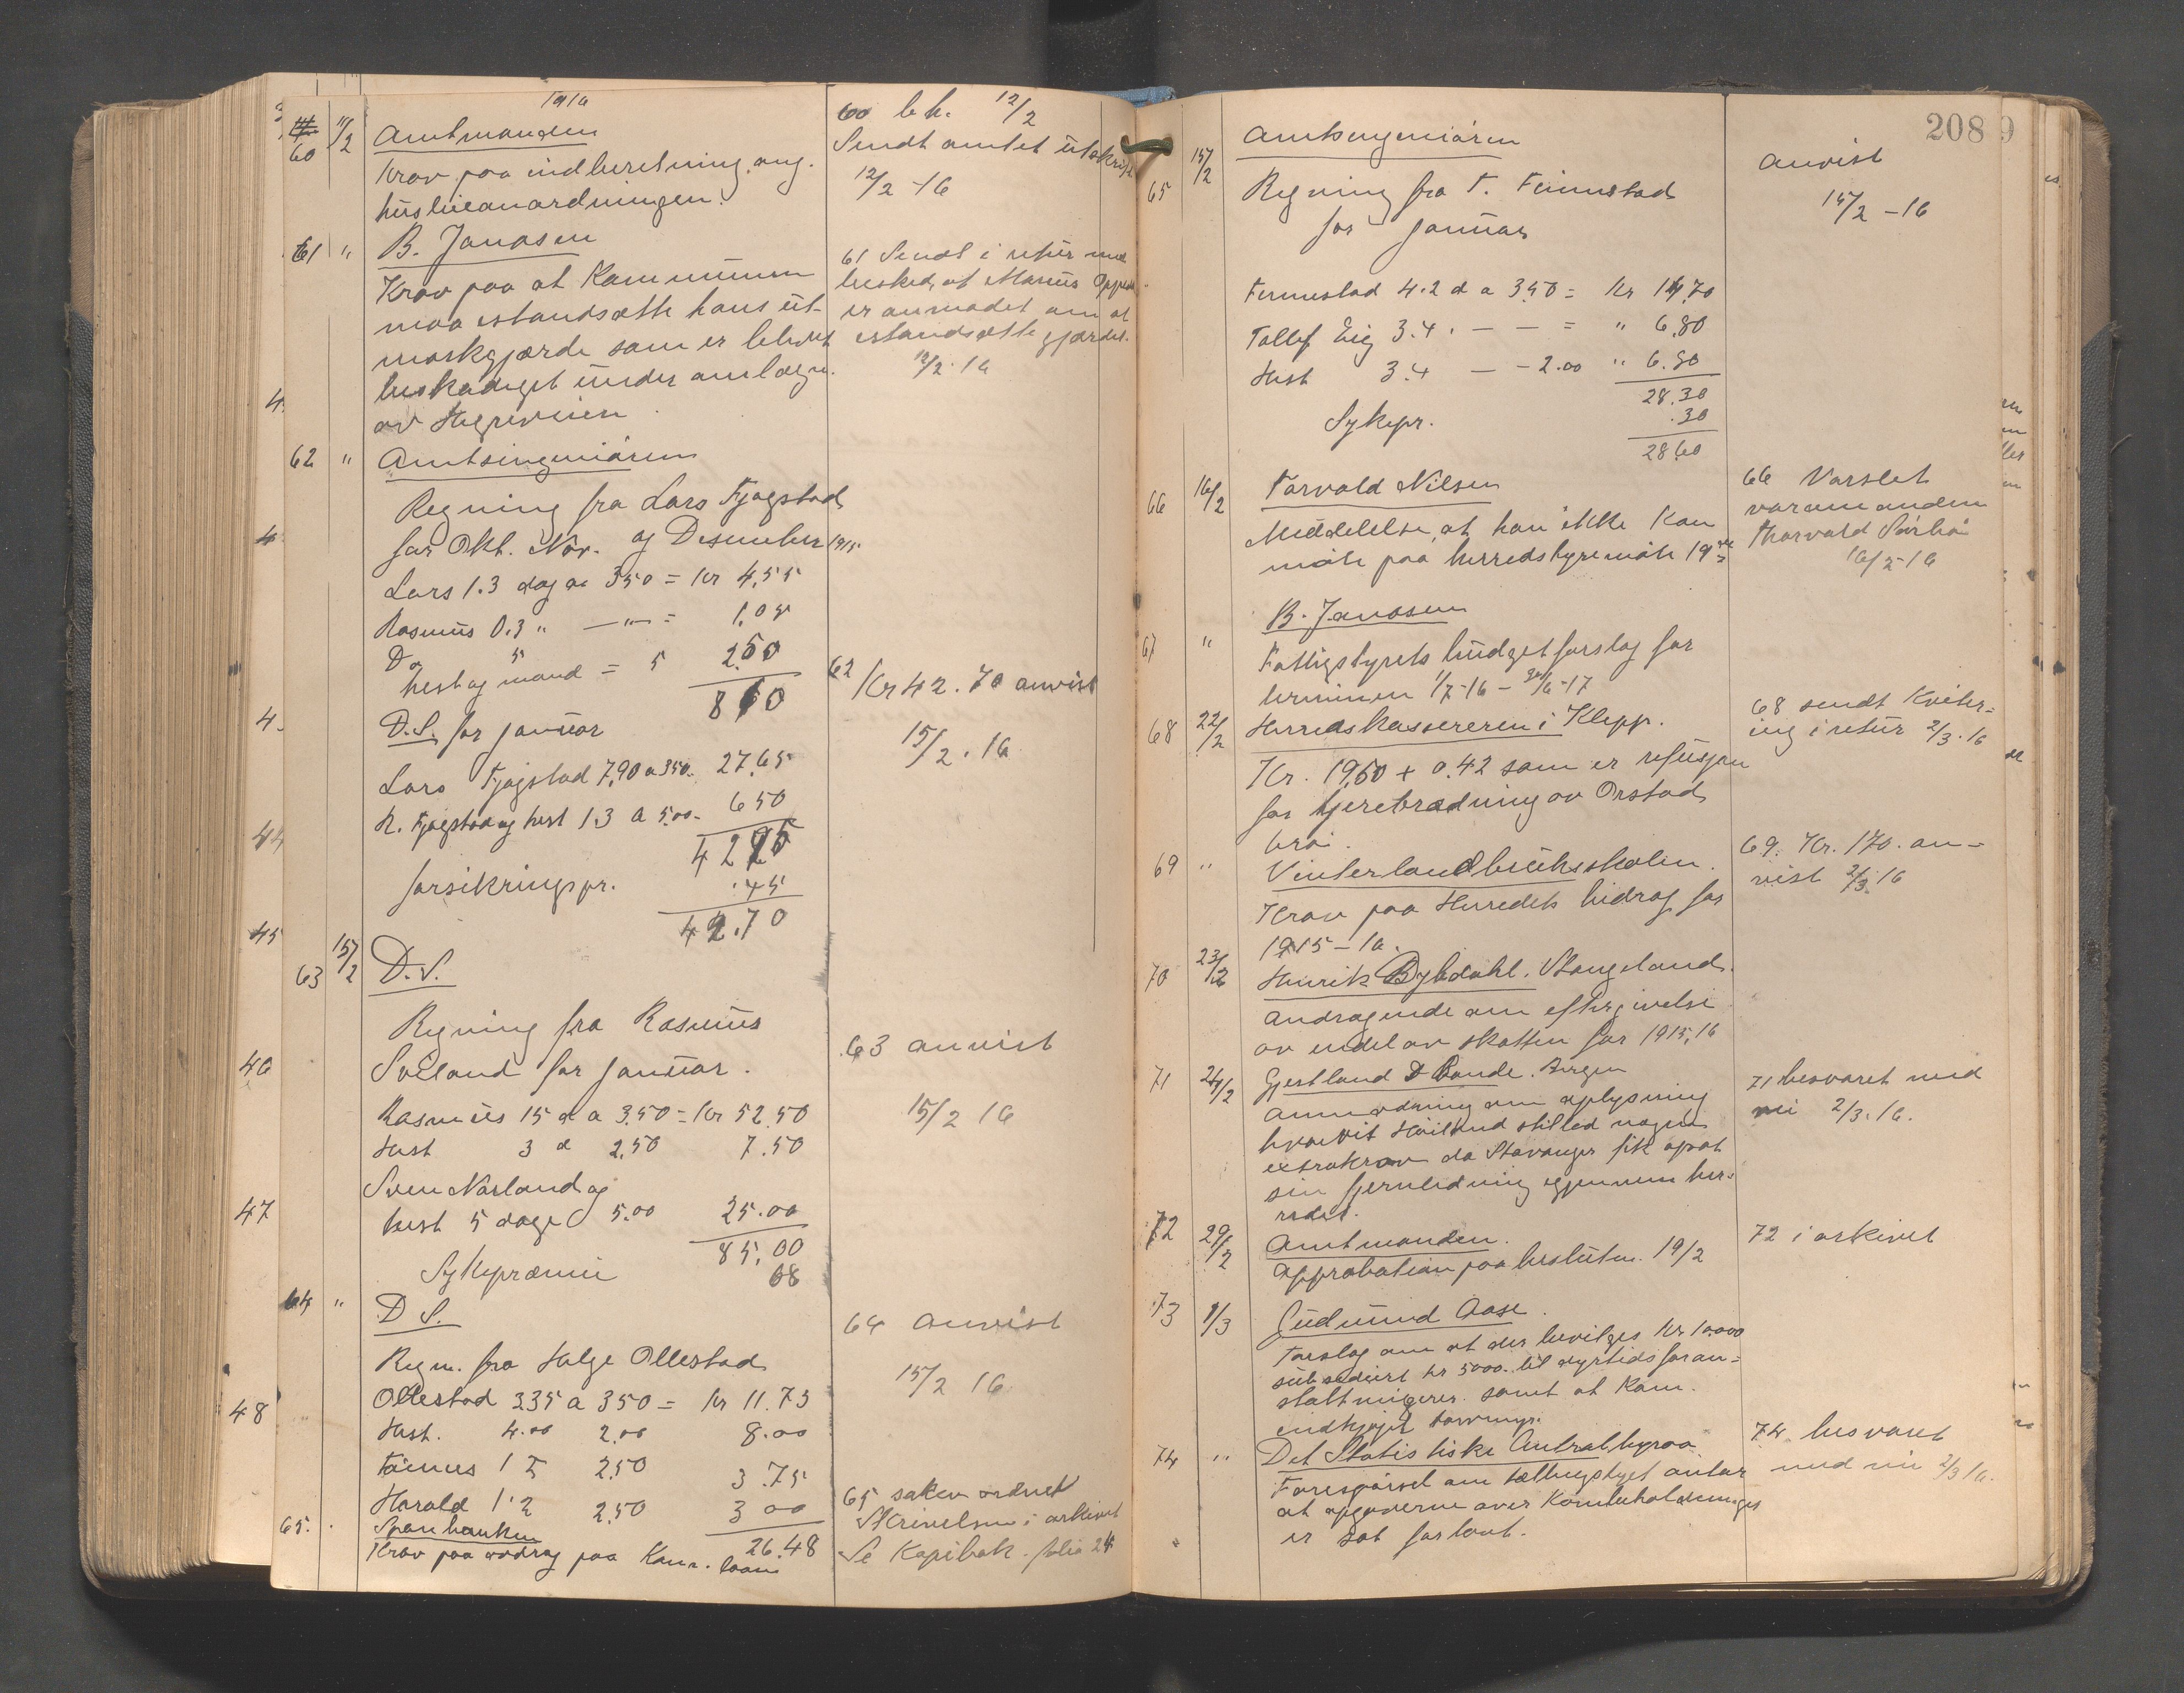 1916
60 11/2 Amtmanden
Krav paa indberetning ang.
huslieanordningen.
60 b.k. 12/2
Sendt amtet utskrift
12/2 -16
61 " B. Jonasen
Krav paa at Kommunen
maa istandsætte hans ut-
markgjærde som er blevet
beskadiget under anlægn.
av Hegreveien
61 Sendt i retur med
besked, at Marius
er anmodet om at
istandsætte gjærdet.
12/2. 16
62 " Amtsingeniøren
Regning fra Lars Fjogstad
for Okt. Nov. og Desember 1915
Lars 1.3 dag a 350 = Kr 4,55
Rasmus 0.3 " —"— = 1,05
Do hest og mand = 5 2.50
8 10
D.S. for januar
Lars Fjogstad 7,90 a 350 - 27,65
R. Fjogstad og hest 1.3 a 5.00 - 6 50
42 25
forsikringspr. .45
42.70
62 Kr 42.70 anvist
15/2. 16
63 15/2 D.S.
Regning fra Rasmus
Soeland for januar.
Rasmus 15 d a 3.50 = Kr 52.50
Hest 3 d 2,50 7.50
Sven Norland og
hest 5 dage 5.00 25.00
85,00
Sykepræmie 68
63 anvist
15/2 16
64 " D S.
Regn. fra Helge Ollestad
Ollestad 335 a 350 = Kr 11.73
Hest. 4.00 2.00 8.00
Tönnes 1 2,50 3.75
Harald 1.2 2,50 3 00
26.48
64 anvist
15/2 16
65. Sparebanken
Krav paa avdrag paa Kom. laan
65 saken ordnet
Skrivelsen i arkivet
Se Kopibok. folio 24
208
65 15/2 Amtsingeniøren
Regning fra T. Finnestad
for januar
anvist
15/2 -16
Finnestad 4.2 d a 3.50 = Kr 14,70
Tollef Eig 3.4. — — = " 6.80
Hest 3.4 — - 2.00 " 6.80
28.30
Sykepr. .30
28.60
66 16/2 Torvald Nilsen
Meddelelse, at han ikke kan
møte paa herredstyremøte 19de
66 Varslet
varamanden
Thorvald
16/2-16
67 " B. Jonasen
Fattigstyrets budgetforslag for
terminen 1/7-16 - 30/6-17
68 22/2 Herredskassereren i Klepp.
Kr. 19,60 + 0.42 som er refusjon
for tjærebrædning av Orstad
bro.
68 sendt Kviter-
ing i retur 2/3. 16
69 " Vinterlandbruksskolen.
Krav paa Herredets bidrag for
1915-16.
69. Kr. 170. an-
vist 2/3. 16
70 23/2 Henrik Bybdahl. Stangeland.
Andragende om eftergivelse
av endel av skatten for 1915, 16
71 24/2 Gjestland & Bonde. Bergen
Anmodning om oplysning
hvorvit Høiland stilled nogen
extrakrav da Stavanger fik opsat
sin fjernledning igjennem her-
redet.
71 besvaret med
nei 2/3. 16.
72 29/2 Amtmanden.
Approbation paa beslutn. 19/2
72 i arkivet
73 1/3 Gudmund Aase.
Forslag om at der bevilges Kr 10.000
subsediert kr 5000. til dyrtidsforan-
staltninger. samt at Kom.
indkjøpt torvmyr.
74 " Det Statistiske Centralbyraa.
Forespørsel om tællingstyret antar
at opgaverne over Kornbeholdninges
er sat for lavt.
74 besvaret
med nei 2/3 16.
4
4
4
44
45
46
47
48